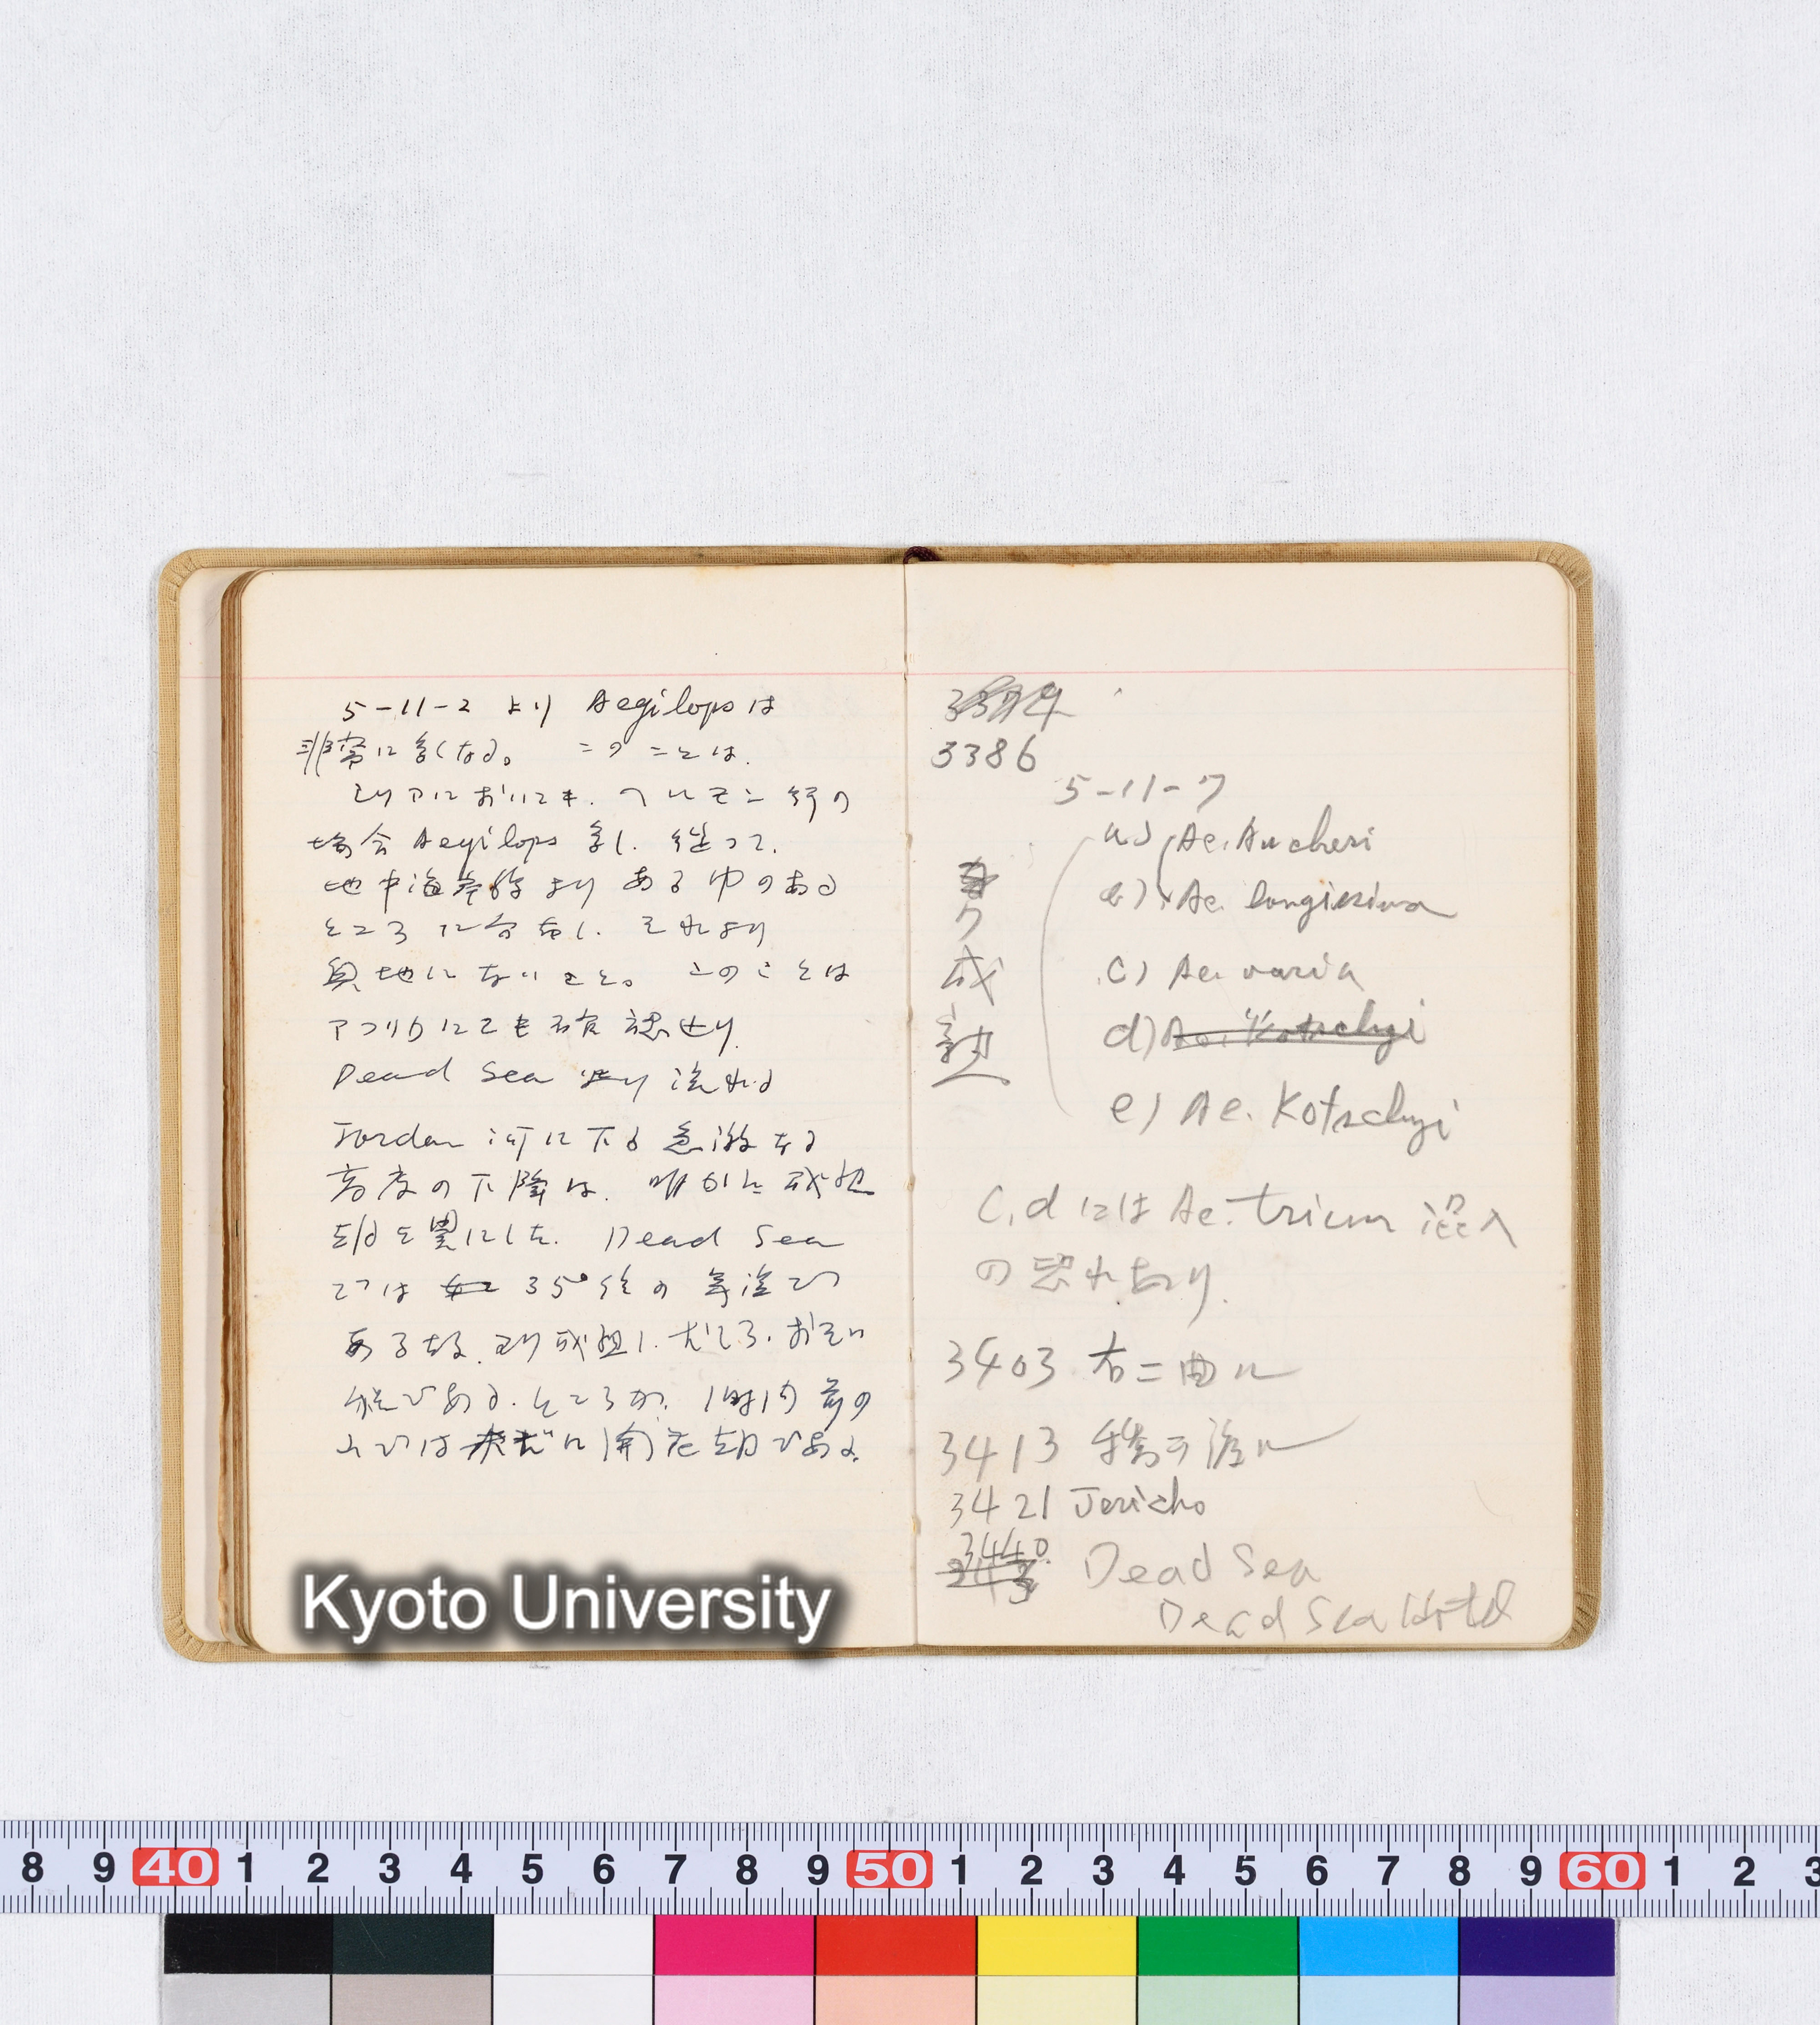 5-11-2 より Aegilopsは
非常に多くなる。 このことは.
シリアにおいても. ヘルモン行の
場合 Aegilops 多し. 従って.
地中海岸線より ある巾のある
ところに分布し. それより
奥地にないこと。 このことは
アフリカにても確認せり.
Dead Sea より 流れる
Jordan 河に下る 急激なる
高度の下降は. 明かに 成熟
を異にした. Dead Sea
では 35°位の 気温で
ある故. より成熟し.
である. ところが. 1時間前の
山では 未だに 開花期である.
3386
5-11-7
a) Ae. Aucheri
b) Ae. longissima
c) Ae. varia
d) Ae. Kotschyi
e) Ae. Kotschyi
ク
成
熟
C, d には Ae. trium 混入
の恐れあり.
3403 右ニ曲ル
3413 橋ヲ渡ル
3421 Jericho
3440 Dead Sea
Dead Sea Hotel
Kyoto University
8 9 40 1 2 3 4 5 6 7 8 9 50 1 2 3 4 5 6 7 8 9 60 1 2 3